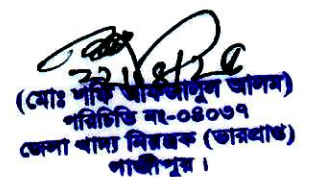 ২২/৪/২৫
(মোঃ শফি আফজালুল আলম)
পরিচিতি নং-০৪০৩৭
জেলা খাদ্য নিয়ন্ত্রক (ভারপ্রাপ্ত)
গাজীপুর।